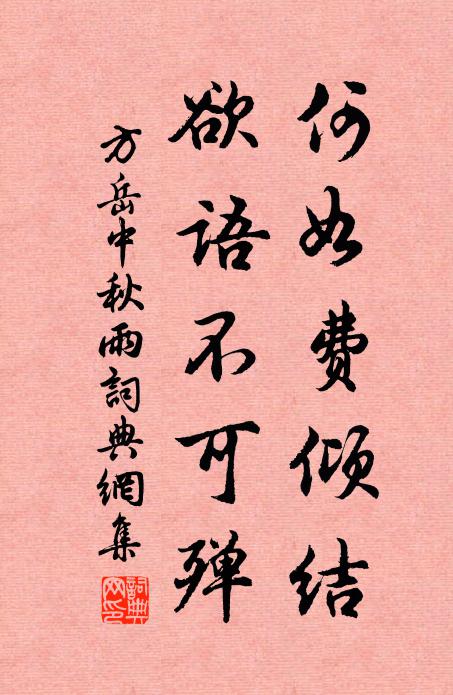 何如费倾结
欲语不可殚
方岳中秋雨詞典網集
詞典網印